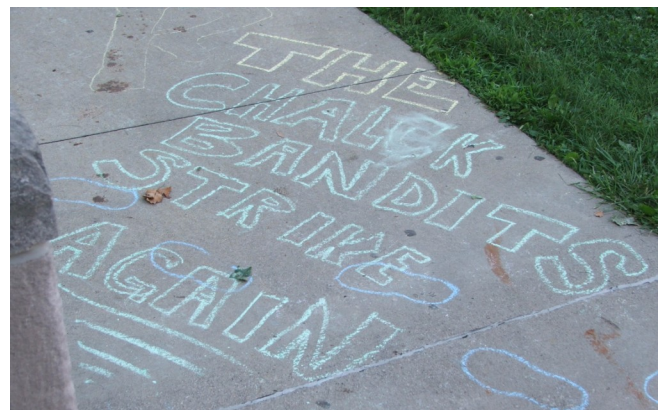 THE
CHALK
BANDITS
STRIKE
AGAIN